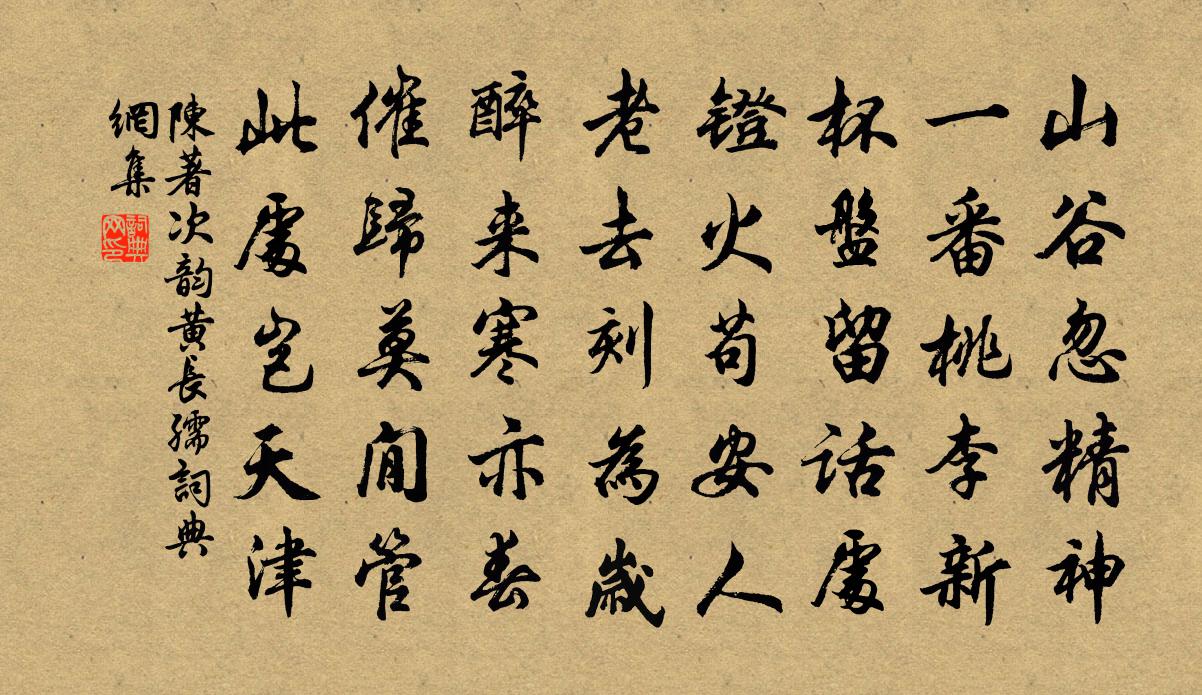 山谷忽精神
一番桃李新
杯盤留話處
鐙火苟安人
老去刻為歲
醉来寒亦春
催歸莫閒管
此處豈天津
陳著次韵黃長孺詞典
網集
詞典
网印